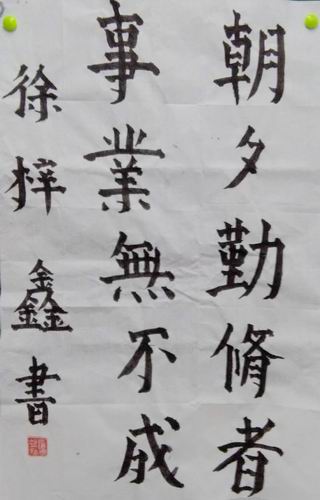 朝夕勤脩者
事業無不成
徐梓鑫書